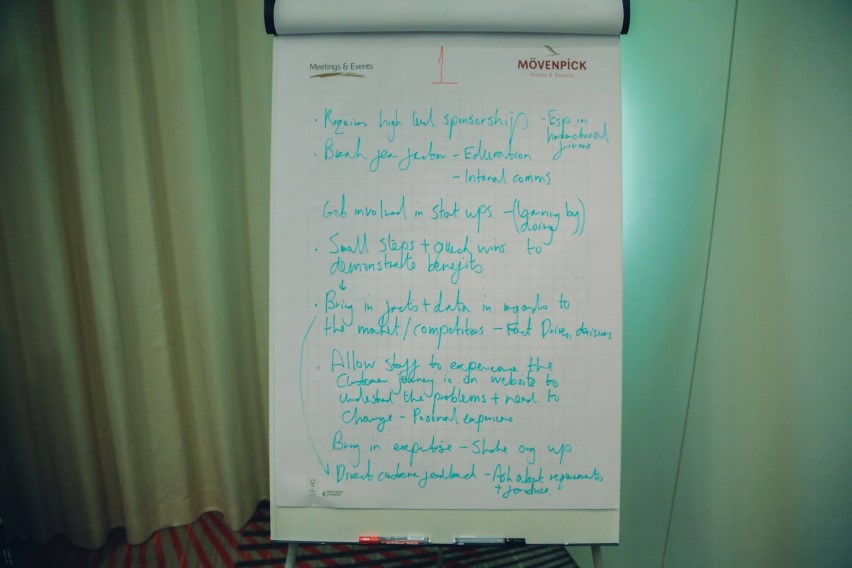 Meetings & Events
1
MÖVENPICK
Hotels & Resorts
· Requires high level sponsorship - Esp in
hierarchical
firms
· Break fear factor - Education
- Internal comms
Get involved in start ups - (learning by
doing)
· Small steps + quick wins to
demonstrate benefits
↓
· Bring in facts + data in regards to
the market/competitors - Fact Driven decisions
· Allow staff to experience the
customer journey ie on website to
understand the problems + need to
change - Personal experience
Bring in expertise - Shake org up
Direct customer feedback - Ask about requirements
+